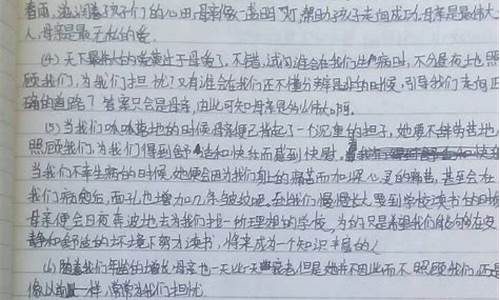 春雨,滋润着孩子们的心田,母亲像一盏明灯,帮助孩子走向成功,母亲是最伟大
人,母亲是最无私的爱。
(4) 天下最伟大的爱莫过于母爱了,不错,试问谁会在我们生病时,不分昼夜地照
顾我们,为我们担忧?又有谁会在我们还不懂分辨是非的时候,引导我们走向正
确的道路?答案只会是母亲,由此可知母亲是的伟大啊。
(5) 当我们呱呱坠地的时候,母亲便已背起了一个沉重的担子,她要不辞劳苦地
照顾我们,为我们得到舒适和快乐而感到快慰,
当我们不幸生病的时候,她便会因为我们身上的病苦而加深心灵的痛苦,甚至会在
我们病愈后,面孔也增加几条皱纹吧,到我们慢慢长大,要到学校读书的时候
母亲便会日夜奔波地去为我们找一所理想的学校,为的只是希望我们能够在安
静和舒适的环境下努力读书,将来成为一个知识丰富的人
(6) 随着我们年龄的增长,母亲也一天比一天衰老,但是她并不因此而不照顾我们,还是
像以前一样,常常为我们担忧